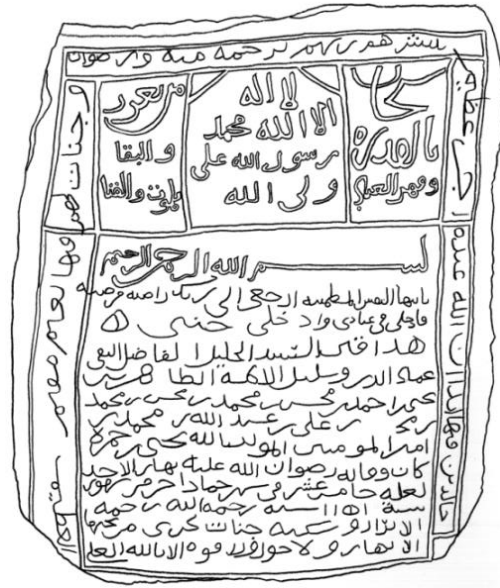 يبشرهم ربهم برحمة منه ورضوان
وجنات لهم فيها نعيم مقيم
خالدين فيها ابدا ان الله عنده اجر عظيم
سبحان
بالقدرة
وقهر العباد
لا اله
الا الله محمد
رسول الله علي
ولي الله
من تعزز
والبقا
بالموت والفنا
بسم الله الرحمن الرحيم
ياايتها النفس المطمئنة ارجعي الى ربك راضية مرضية
فادخلي في عبادي وادخلي جنتي
هذا قبر السيد الجليل الفاضل التقي
عماد الدين وسليل الائمة الطاهرين
احمد بن محسن بن محمد بن يحيى بن محمد
بن علي بن عبد الله بن محمد بن
امير المومنين المويد بالله يحيى بن حمزة
كانت وفاته رضوان الله عليه نهار الاحد
لعله خامس عشر في شهر جمادا اخر من شهور
سنة رحمه الله رحمة
الابرار واسكنه جنات تجري من تحتها
الانهار ولا حول ولا قوة الا بالله العلي